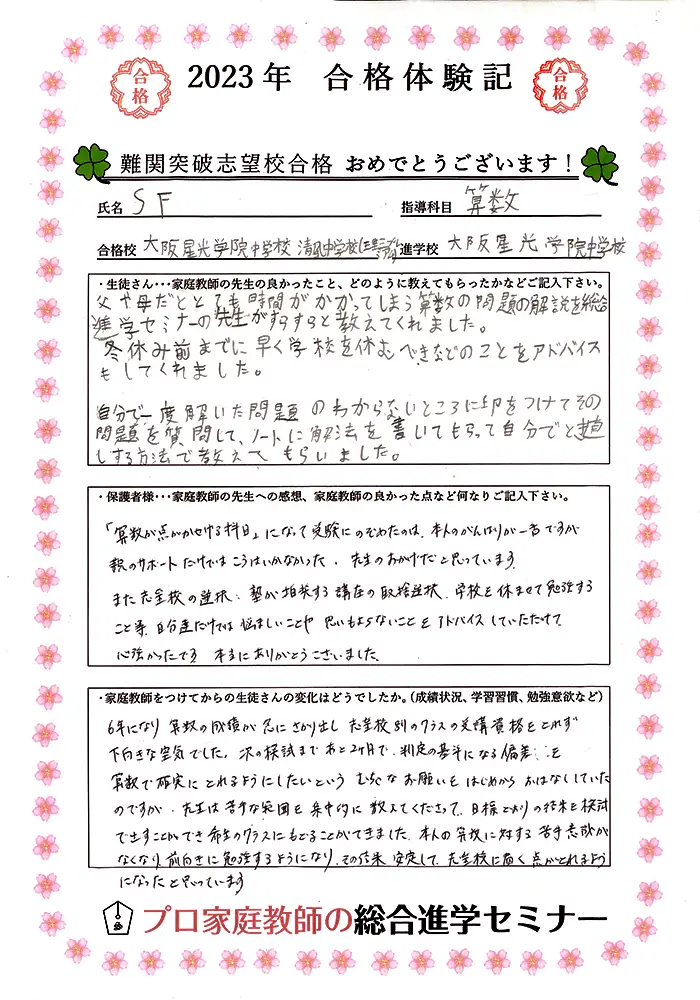 合格
2023年 合格体験記
合格
難関突破志望校合格 おめでとうございます!
氏名 SF 指導科目 算数
合格校 大阪星光学院中学校 清風中学校 進学校 大阪星光学院中学校
・生徒さん・・・家庭教師の先生の良かったこと、どのように教えてもらったかなどご記入下さい。
父や母だととても時間がかかってしまう算数の問題の解説を総合
進学セミナーの先生がすらすらと教えてくれました。
冬休み前までに早く学校を休むべきなどのことをアドバイス
もしてくれました。
自分で一度解いた問題のわからないところに印をつけてその
問題を質問して、ノートに解法を書いてもらって自分でと直
しする方法で教えてもらいました。
・保護者様・・・家庭教師の先生への感想、家庭教師の良かった点など何なりご記入下さい。
「算数が点がかせげる科目」になって受験にのぞめたのは、本人のがんばりが一番ですが
親のサポートだけではこうはいかなかった、先生のおかげだと思っています。
また志望校の選択、塾が推奨する講座の取捨選択、学校を休ませて勉強する
こと等、自分達だけでは悩ましいことや思いもよらないことをアドバイスしていただけて
心強かったです 本当にありがとうございました。
・家庭教師をつけてからの生徒さんの変化はどうでしたか。(成績状況、学習習慣、勉強意欲など)
6年になり算数の成績が急にさがり出し志望校別のクラスの受講資格をとれず
下向きな空気でした。次の模試まであと2ヶ月で、判定の基準になる偏差 を
算数で確実にとれるようにしたいという むちゃなお願いをはじめからおはなししていた
のですが、先生は苦手な範囲を集中的に教えてくださって、目標どおりの結果を模試
で出すことができ希望のクラスにもどることができました。本人の算数に対する苦手意識が
なくなり前向きに勉強するようになり、その結果 安定して、志望校に届く点がとれるよう
になったと思っています
プロ家庭教師の総合進学セミナー